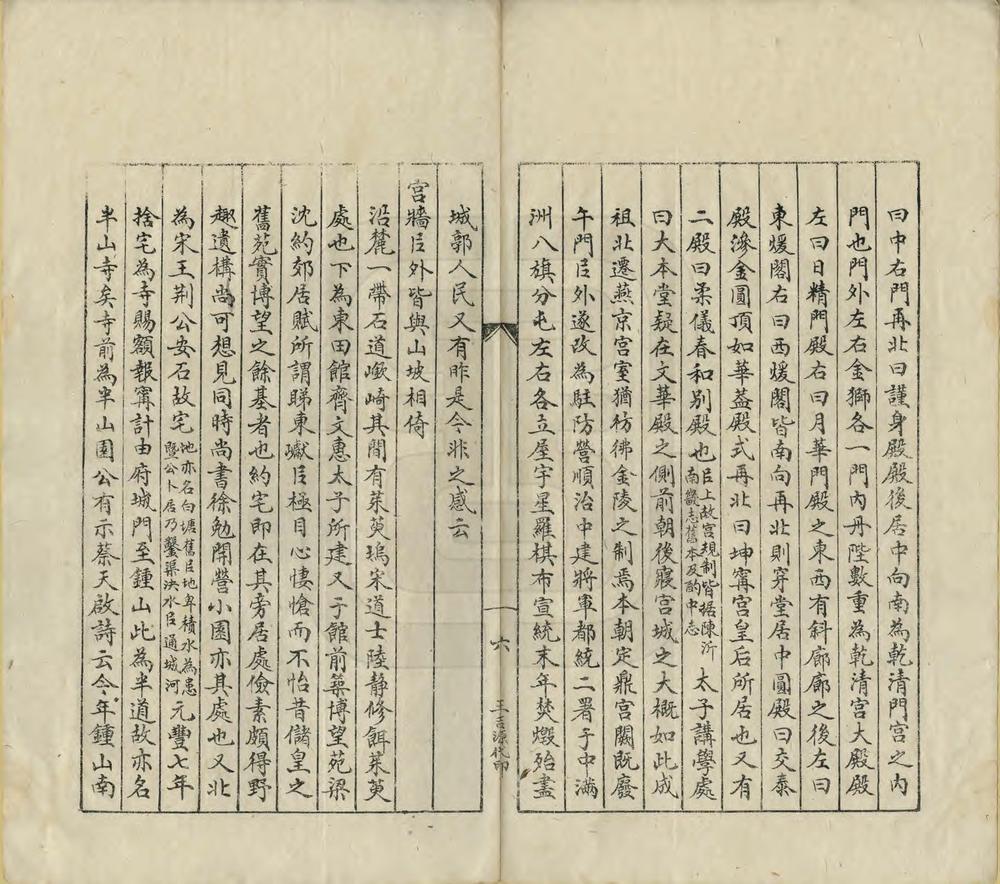 曰中右門再北曰謹身殿殿後居中向南為乾清門宮之內
門也門外左右金獅各一門內丹陛數重為乾清宮大殿殿
左曰日精門殿右曰月華門殿之東西有斜廊廊之後左曰
東煖閣右曰西煖閣皆南向再北則穿堂居中圓殿曰交泰
殿滲金圓頂如華蓋殿式再北曰坤甯宮皇后所居也又有
二殿曰柔儀春和別殿也
㠯上故宮規制皆据陳沂
南畿志舊本及酌中志
太子講學處
曰大本堂疑在文華殿之側前朝後寢宮城之大概如此成
祖北遷燕京宮室猶彷彿金陵之制焉本朝定鼎宮闕既廢
午門㠯外遂改為駐防營順治中建將軍都統二署于中滿
洲八旗分屯左右各立屋宇星羅棋布宣統末年焚燬殆盡
城郭人民又有昨是今非之感云
宮牆㠯外皆與山坡相倚
沿麓一帶石道嶔崎其間有茱萸塢宋道士陸靜修餌茱萸
處也下為東田館齊文惠太子所建又于館前築博望苑梁
沈約郊居賦所謂睇東巘㠯極目心悽愴而不怡昔儲皇之
舊苑實博望之餘基者也約宅即在其旁居處儉素頗得野
趣遺構尚可想見同時尚書徐勉開營小園亦其處也又北
為宋王荊公安石故宅
地亦名白塘舊㠯地卑積水為患
暨公卜居乃鑿渠決水㠯通城河
元豐七年
捨宅為寺賜額報甯計由府城門至鍾山此為半道故亦名
半山寺矣寺前為半山園公有示蔡天啟詩云今年鍾山南
六
王吉源代印